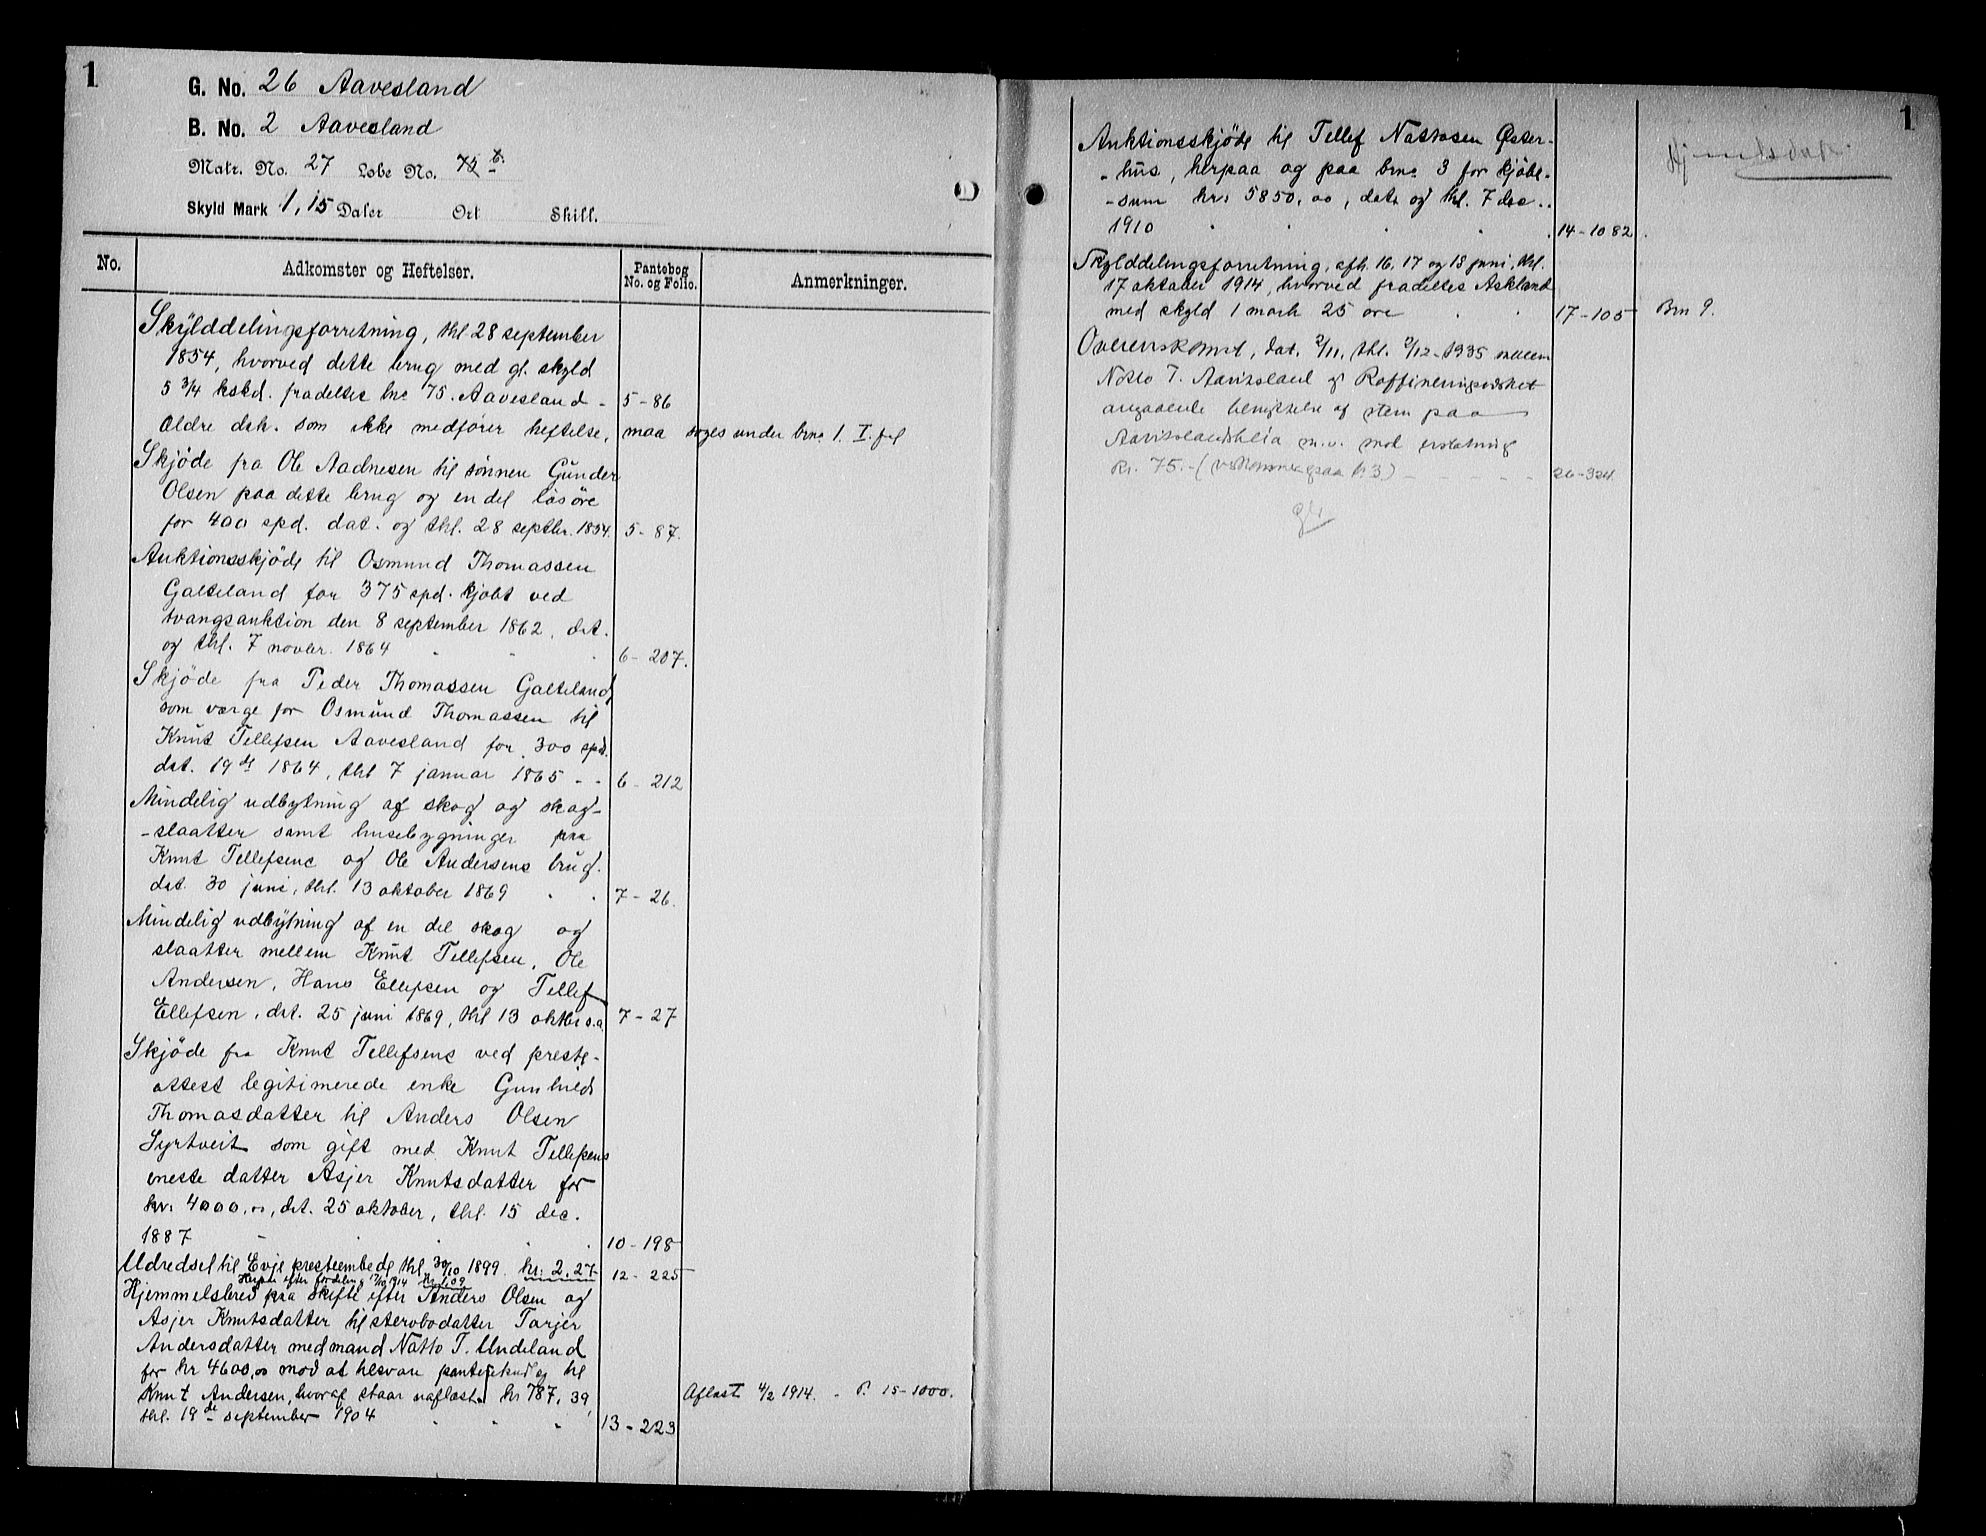 1
G. No. 26 Aavesland
B. No. 2 Aavesland
Matr. No. 27 Løbe No. 75 b.
Skyld Mark 1,15 Daler Ort Skill.
No. Adkomster og Heftelser. Pantebog No. og Folio. Anmerkninger.
Skylddelingsforretning, thl 28 september
1854, hvorved dette brug med gl. skyld
5 3/4 kskd. fradeltes lnr. 75. Aavesland - 5-86
Ældre dok. som ikke medfører heftelse, maa søges under brno 1. I. fol
Skjøde fra Ole Aadnesen til sønnen Gunder
Olsen paa dette brug og en del løsøre
for 400 spd. dat. og thl. 28 septbr. 1854. 5-87.
Auktionsskjøde til Osmund Thomassen
Galteland for 375 spd. kjøbt ved
tvangsauktion den 8 september 1862, dat.
og thl. 7 novbr. 1864 6-207.
Skjøde fra Peder Thomassen Galteland
som værge for Osmund Thomassen til
Knut Tellefsen Aavesland for 300 spd.
dat. 19 ds 1864, thl 7 januar 1865 - - 6-212
Mindelig udbytning af skog og skog-
-slaatter samt husebygninger paa
Knut Tellefsens og Ole Andersens brug.
dat. 30 juni, thl. 13 oktober 1869 7-26.
Mindelig udbytning af en del skog og
slaatter mellem Knut Tellefsen, Ole
Andersen, Hans Ellefsen og Tellef
Ellefsen, dat. 25 juni 1869, thl 13 oktbr s.a. 7-27
Skjøde fra Knut Tellefsens ved preste-
attest legitimerede enke Gunhild
Thomasdatter til Anders Olsen
Syrtveit som gift med Knut Tellefsens
eneste datter Asjer Knutsdatter for
kr. 4000.00, dat. 25 oktober, thl. 15 dec.
1887 10-198
Udredsel til Evje presteembede thl 30/10 1899 kr. 2.27 12-225
Herpaa efter fordeling 17/10 1914 kr. 1,09
Hjemmelsbrev fra skifte efter Anders Olsen og
Asjer Knutsdatter til sterbodatter Torjer
Andersdatter med mand Natto T. Undeland
for kr 4600,00 mod at tilsvare til
Knut Andersen, hvoraf staar uaflæst kr 787,39, Aflæst 4/2 1914. - P. 15-1000.
thl. 19 de september 1904 13-223
1
Auktionsskjøde til Tellef Nattosen Øster-
-hus, herpaa og paa brno 3 for kjøbe-
-sum kr. 5850,00, dat. og thl. 7 dec..
1910 14-1082.
Skylddelingsforretning, afh. 16, 17 og 18 juni, thl.
17 oktober 1914, hvorved fradeltes Askland
med skyld 1 mark 25 øre 17-105 Brn 9.
Overenskomst, dat. 2/11, thl. 2/12-1935 mellem
Notto T. Aavesland og Raffineringsverket
angaaende benyttelse af stem paa
m.v. mod erstatning
Kr. 75.- 26-324